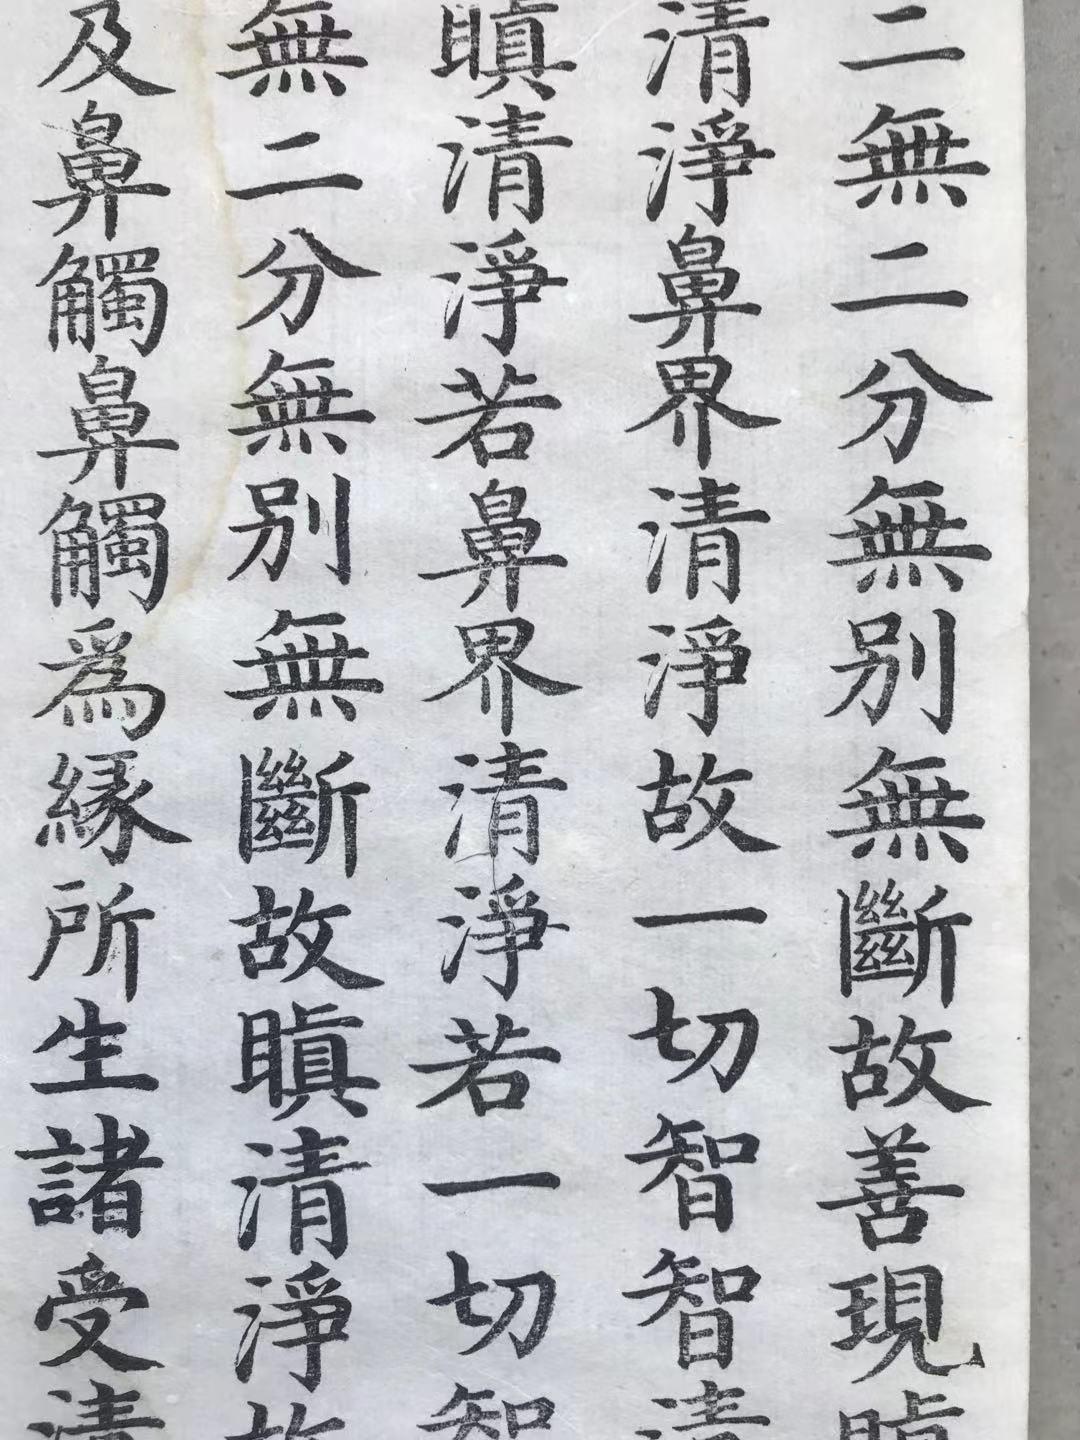 二無二分無别無斷故善現瞋
清淨鼻界清淨故一切智智清
瞋清淨若鼻界清淨若一切智
無二分無别無斷故瞋清淨故
及鼻觸鼻觸爲緣所生諸受清